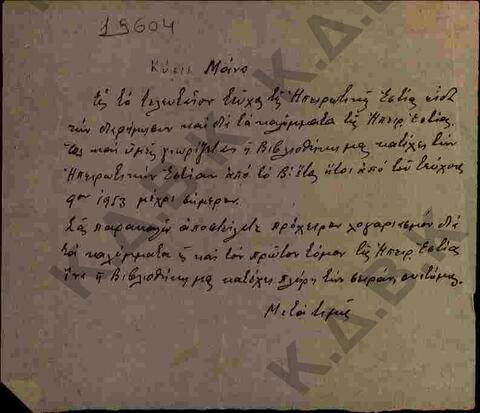 19604
Κύριε Μάνο
Εἰς τό τελευταῖον τεῦχος τῆς Ἠπειρωτικῆς Ἑστίας εἶδα
τήν καί διά τά καλύμματα τῆς Ἠπειρ. Ἑστίας.
Ὡς καί ὑμεῖς γνωρίζετε ἡ Βιβλιοθήκη μας κατέχει τήν
Ἠπειρωτικήν Ἑστίαν ἀπό τό Β! ἔτος ἤτοι ἀπό τοῦ τεύχους
9ον 1953 μέχρι σήμερον.
Σᾶς παρακαλῶ ἀποστείλετε πρόχειρον λογαριασμόν διά
τά καλύμματα ὡς καί τόν πρῶτον τόμον τῆς Ἠπειρ. Ἑστίας
ἵνα ἡ Βιβλιοθήκη μας κατέχει πλήρη τήν σειράν
Μετά τιμῆς
Κ.Δ.Β.Κ